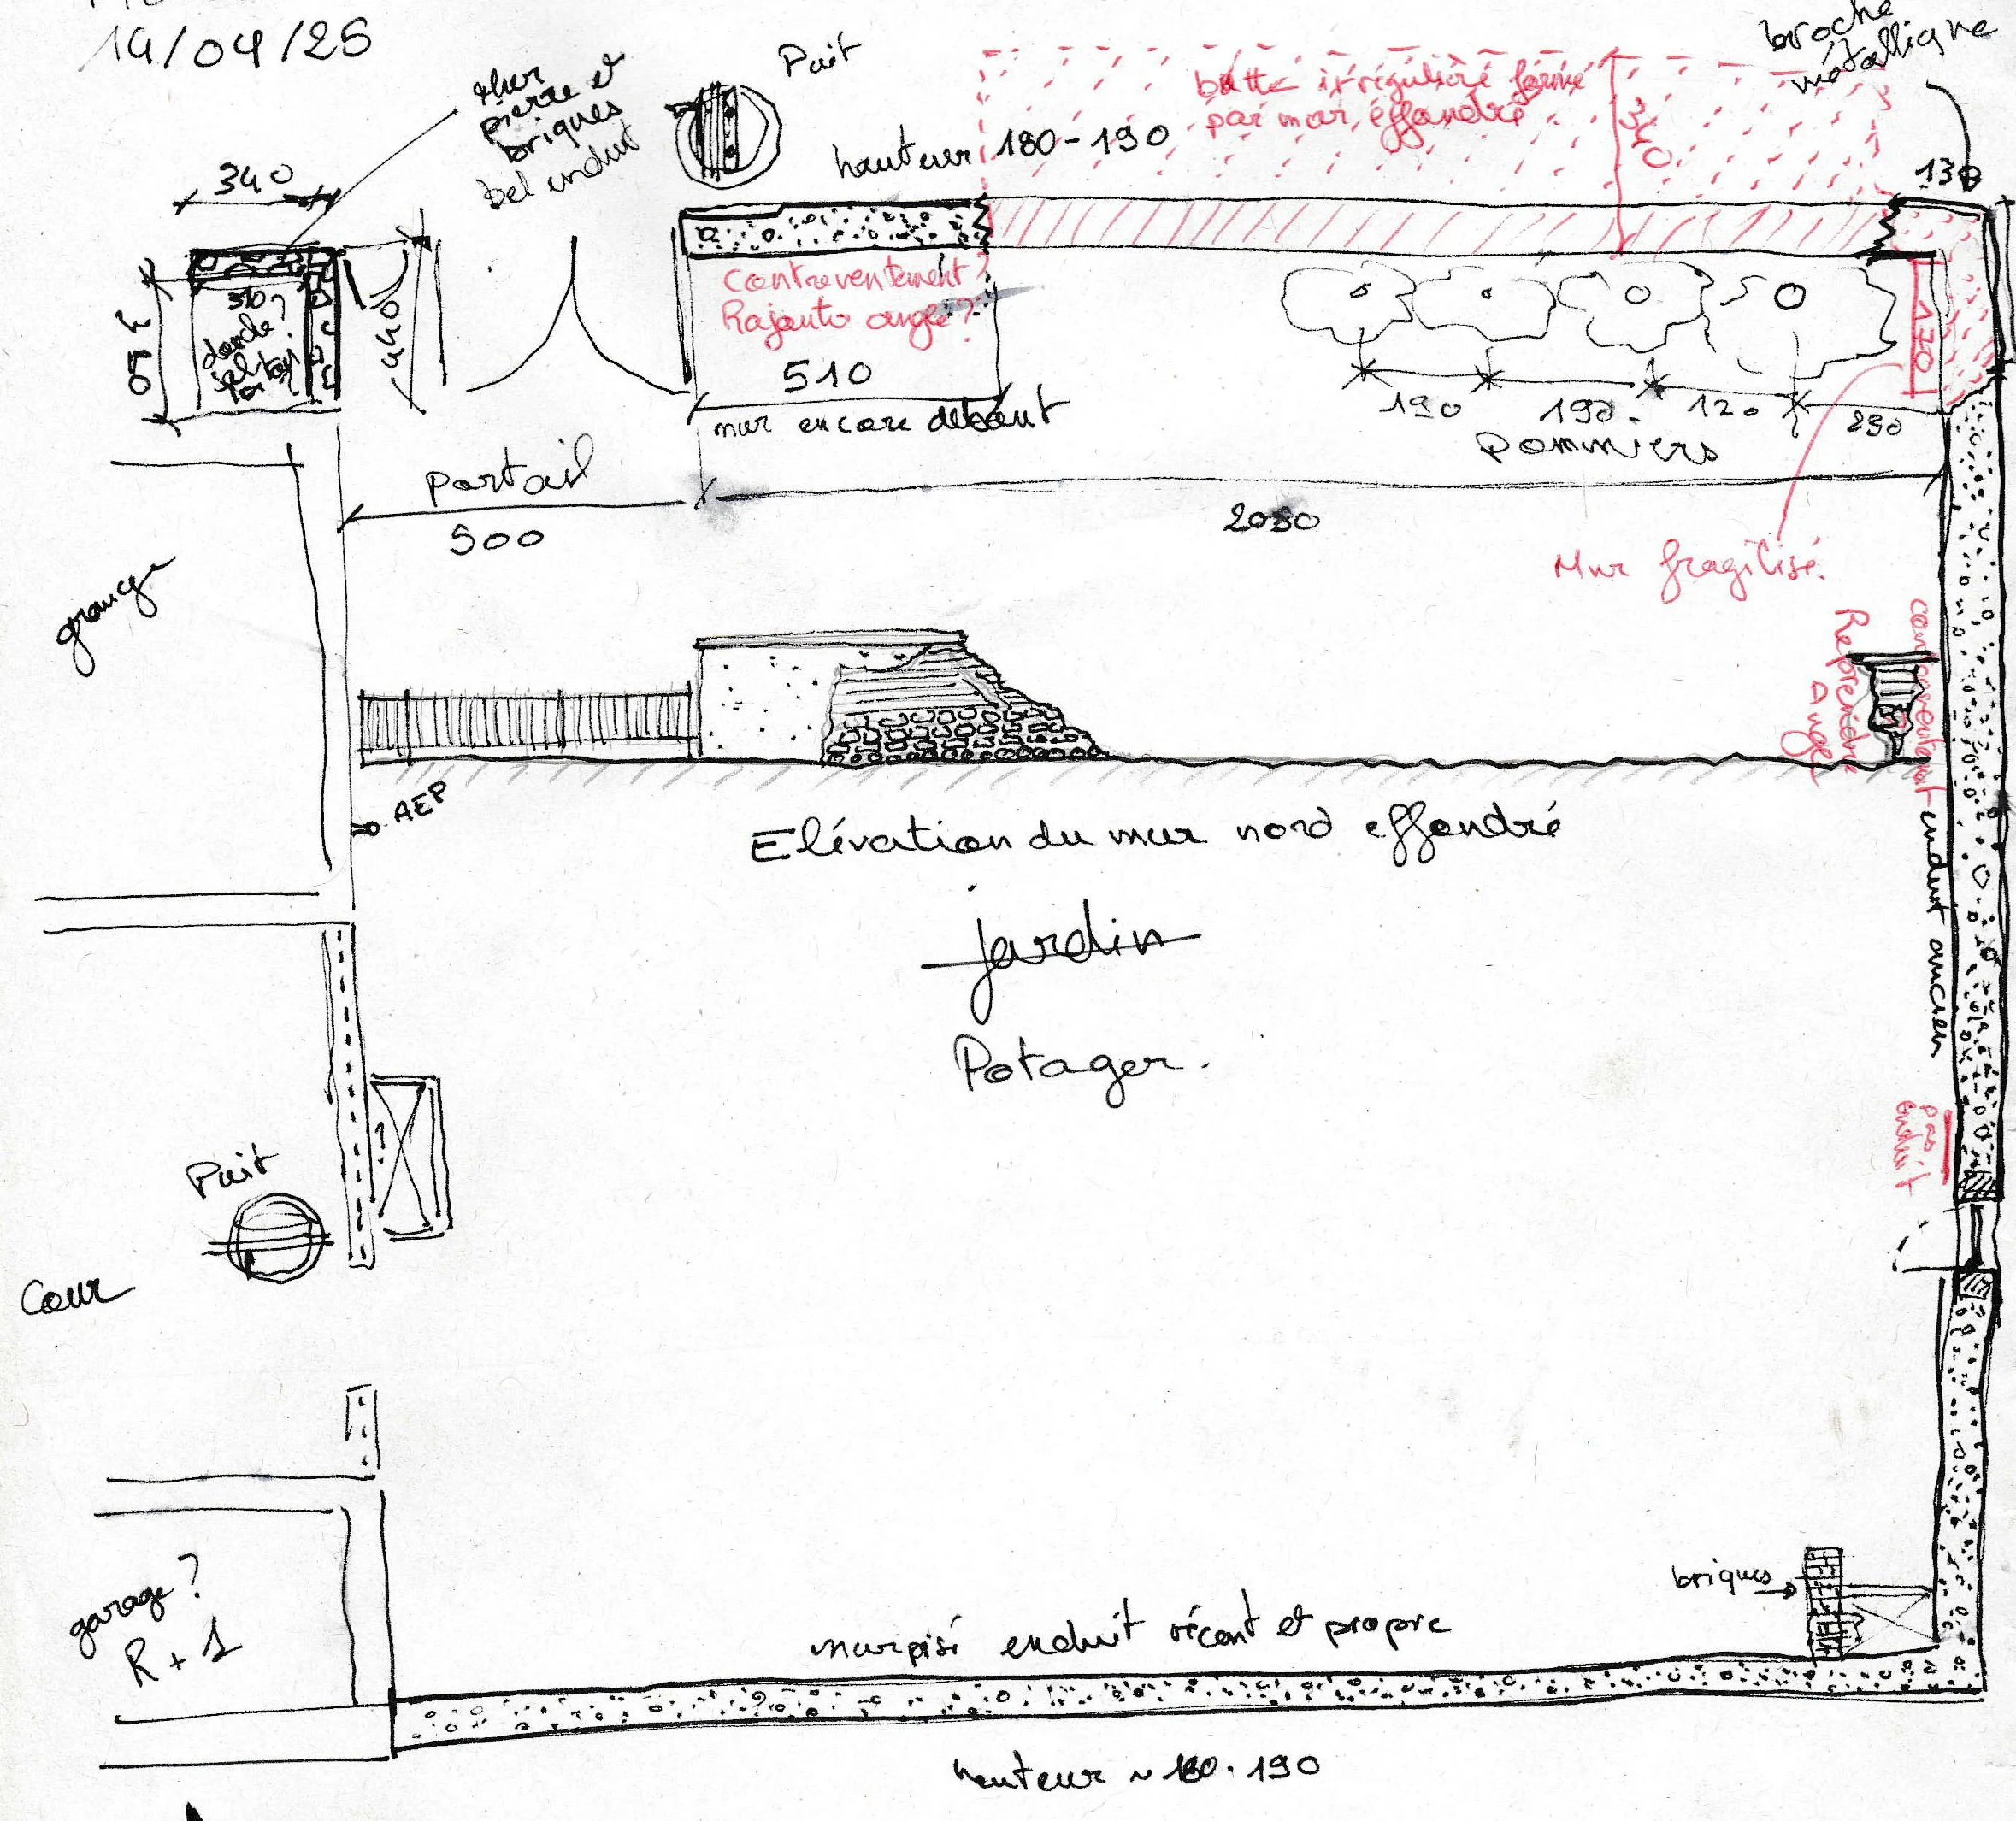 19/04/25
Mur
pierre et
briques
bel enduit
Puit
hauteur 180-190
butte irrégulière formé
par mur effondré
340
broche
métallique
130
340
310?
350
440
contreventement?
Rajouto angle?
510
mur encore debout
130
190
190
120
230
Pommiers
portail
500
2080
Mur fragilisé.
grange
contreventement
Reprendre
Angle
AEP
Elévation du mur nord effondré
enduit ancien
jardin
Potager.
pas
enduit
Puit
Cour
garage?
R+1
briques
mur pisé enduit récent et propre
hauteur ~ 180.190